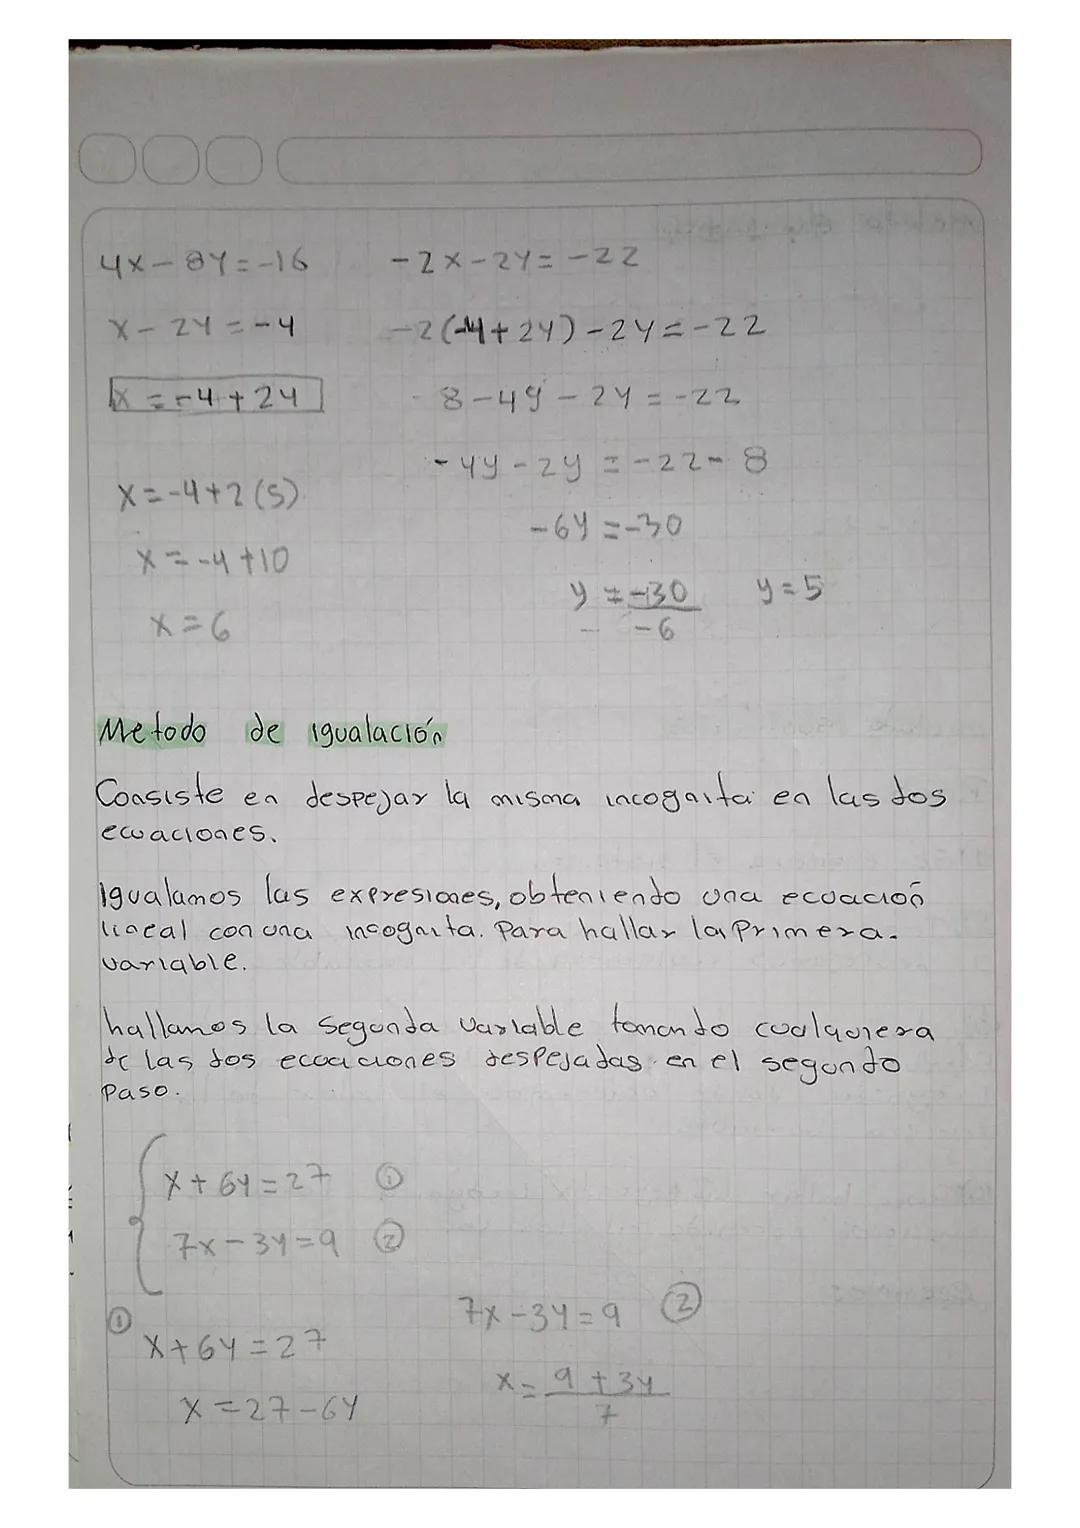 4x-8y=-16
x-2y=-4
x=-4+2y
x=-4+2(5)
x=-4+10
x=6
-2x-2y=-22
-2(-4+2y)-2y=-22
8-4y-2y=-22
-4y-2y=-22-8
-6y=-30
y=-30/-6 y=5
Metodo de igualación
Consiste en despejar la misma incognita en las dos
ecuaciones.
Igualamos las expresiones, obteniendo una ecuación
lineal con una incognita. Para hallar la Primera.
variable.
hallamos la segunda variable tomando cualquiera
de las dos ecuaciones despejadas en el segundo
Paso.
x+6y=27 ①
7x-3y=9 ②
①
x+6y=27
x=27-6y
7x-3y=9 ②
x=9+3y/7